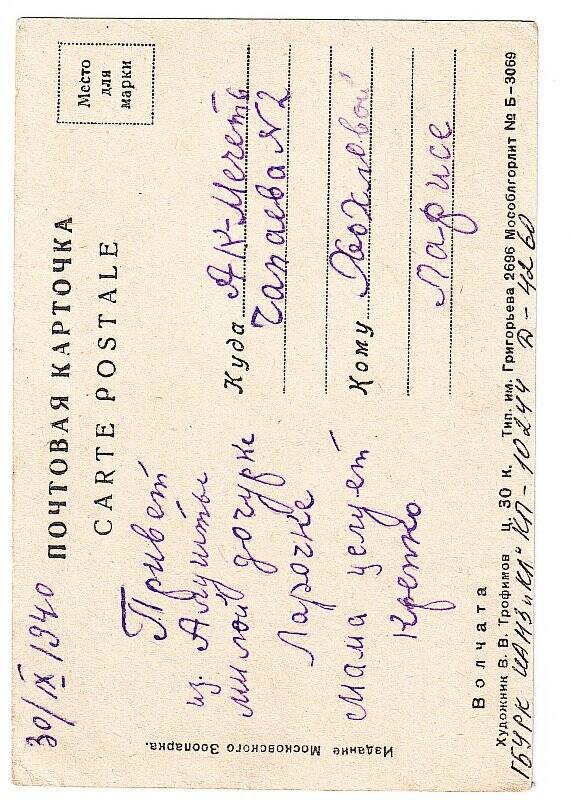 30/IX 1940
ПОЧТОВАЯ КАРТОЧКА
CARTE POSTALE
Место
для
марки
Привет
из Алушты
милой дочурке
Ларочке
Мама целует
крепко
Куда Ак-Мечеть
Чапаева N2
Кому
Ларисе
Издание Московского Зоопарка.
Волчата
Художник В. В. Трофимов Ц. 30 к. Тип. им. Григорьева 2696 Мособлгорлит № Б-3069
ГБУРК КП-10244 Д-4260